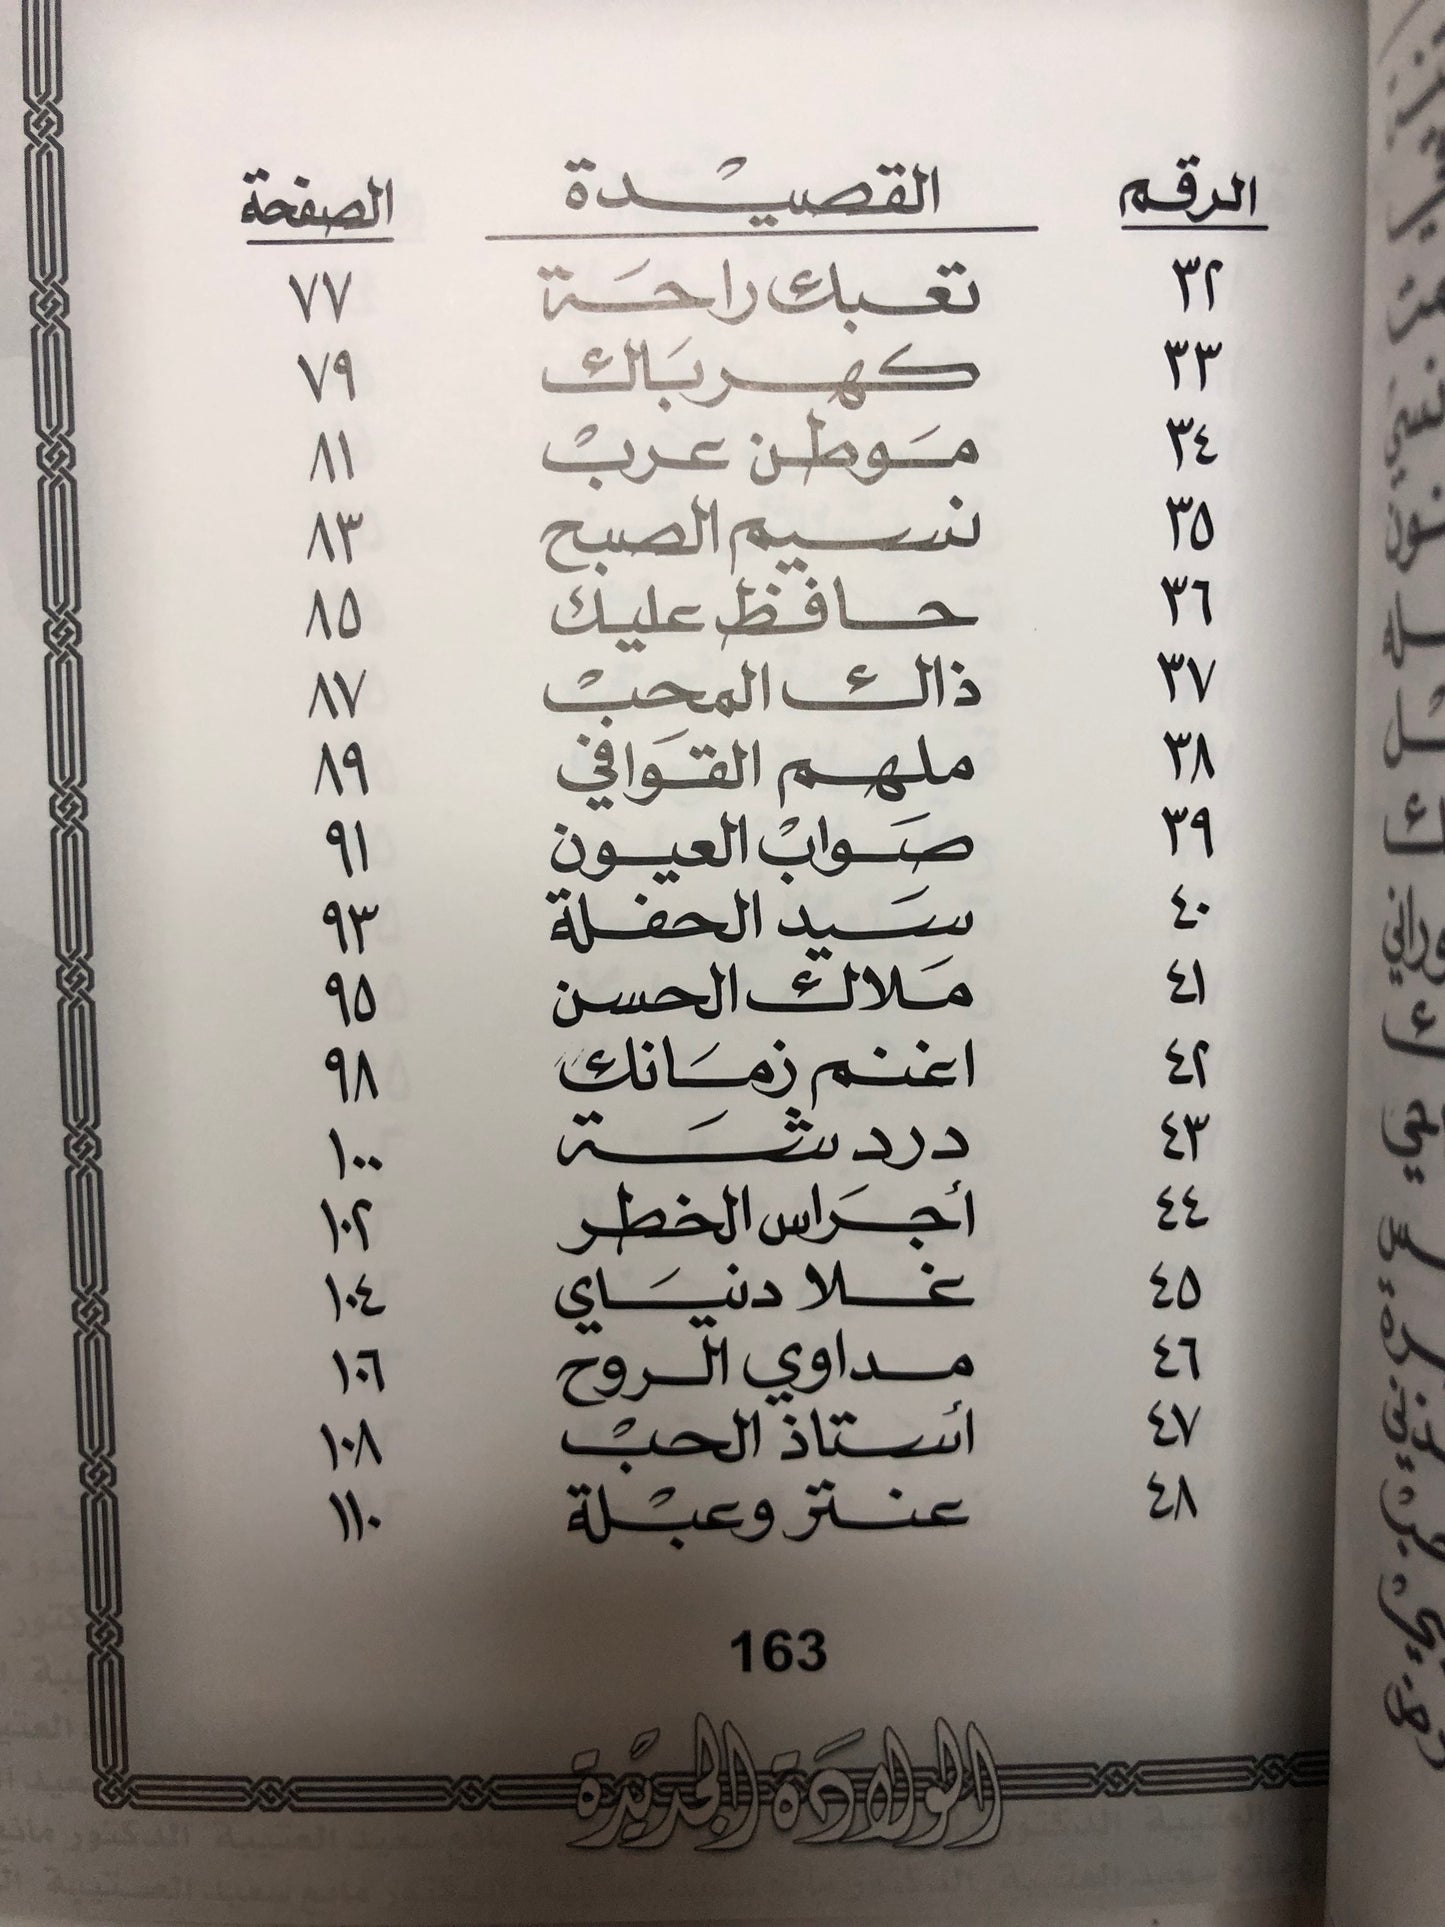 الرقم القصيدة الصفحة
٣٢ تعبك راحة ٧٧
٣٣ كهرباك ٧٩
٣٤ موطن عرب ٨١
٣٥ نسيم الصبح ٨٣
٣٦ حافظ عليك ٨٥
٣٧ ذاك المحب ٨٧
٣٨ ملهم القوافي ٨٩
٣٩ صواب العيون ٩١
٤٠ سيد الحفلة ٩٣
٤١ ملاك الحسن ٩٥
٤٢ اغنم زمانك ٩٨
٤٣ دردشة ١٠٠
٤٤ أجراس الخطر ١٠٢
٤٥ غلا دنياي ١٠٤
٤٦ مداوي الروح ١٠٦
٤٧ أستاذ الحب ١٠٨
٤٨ عنتر وعبلة ١١٠
163
الولادة الجديدة